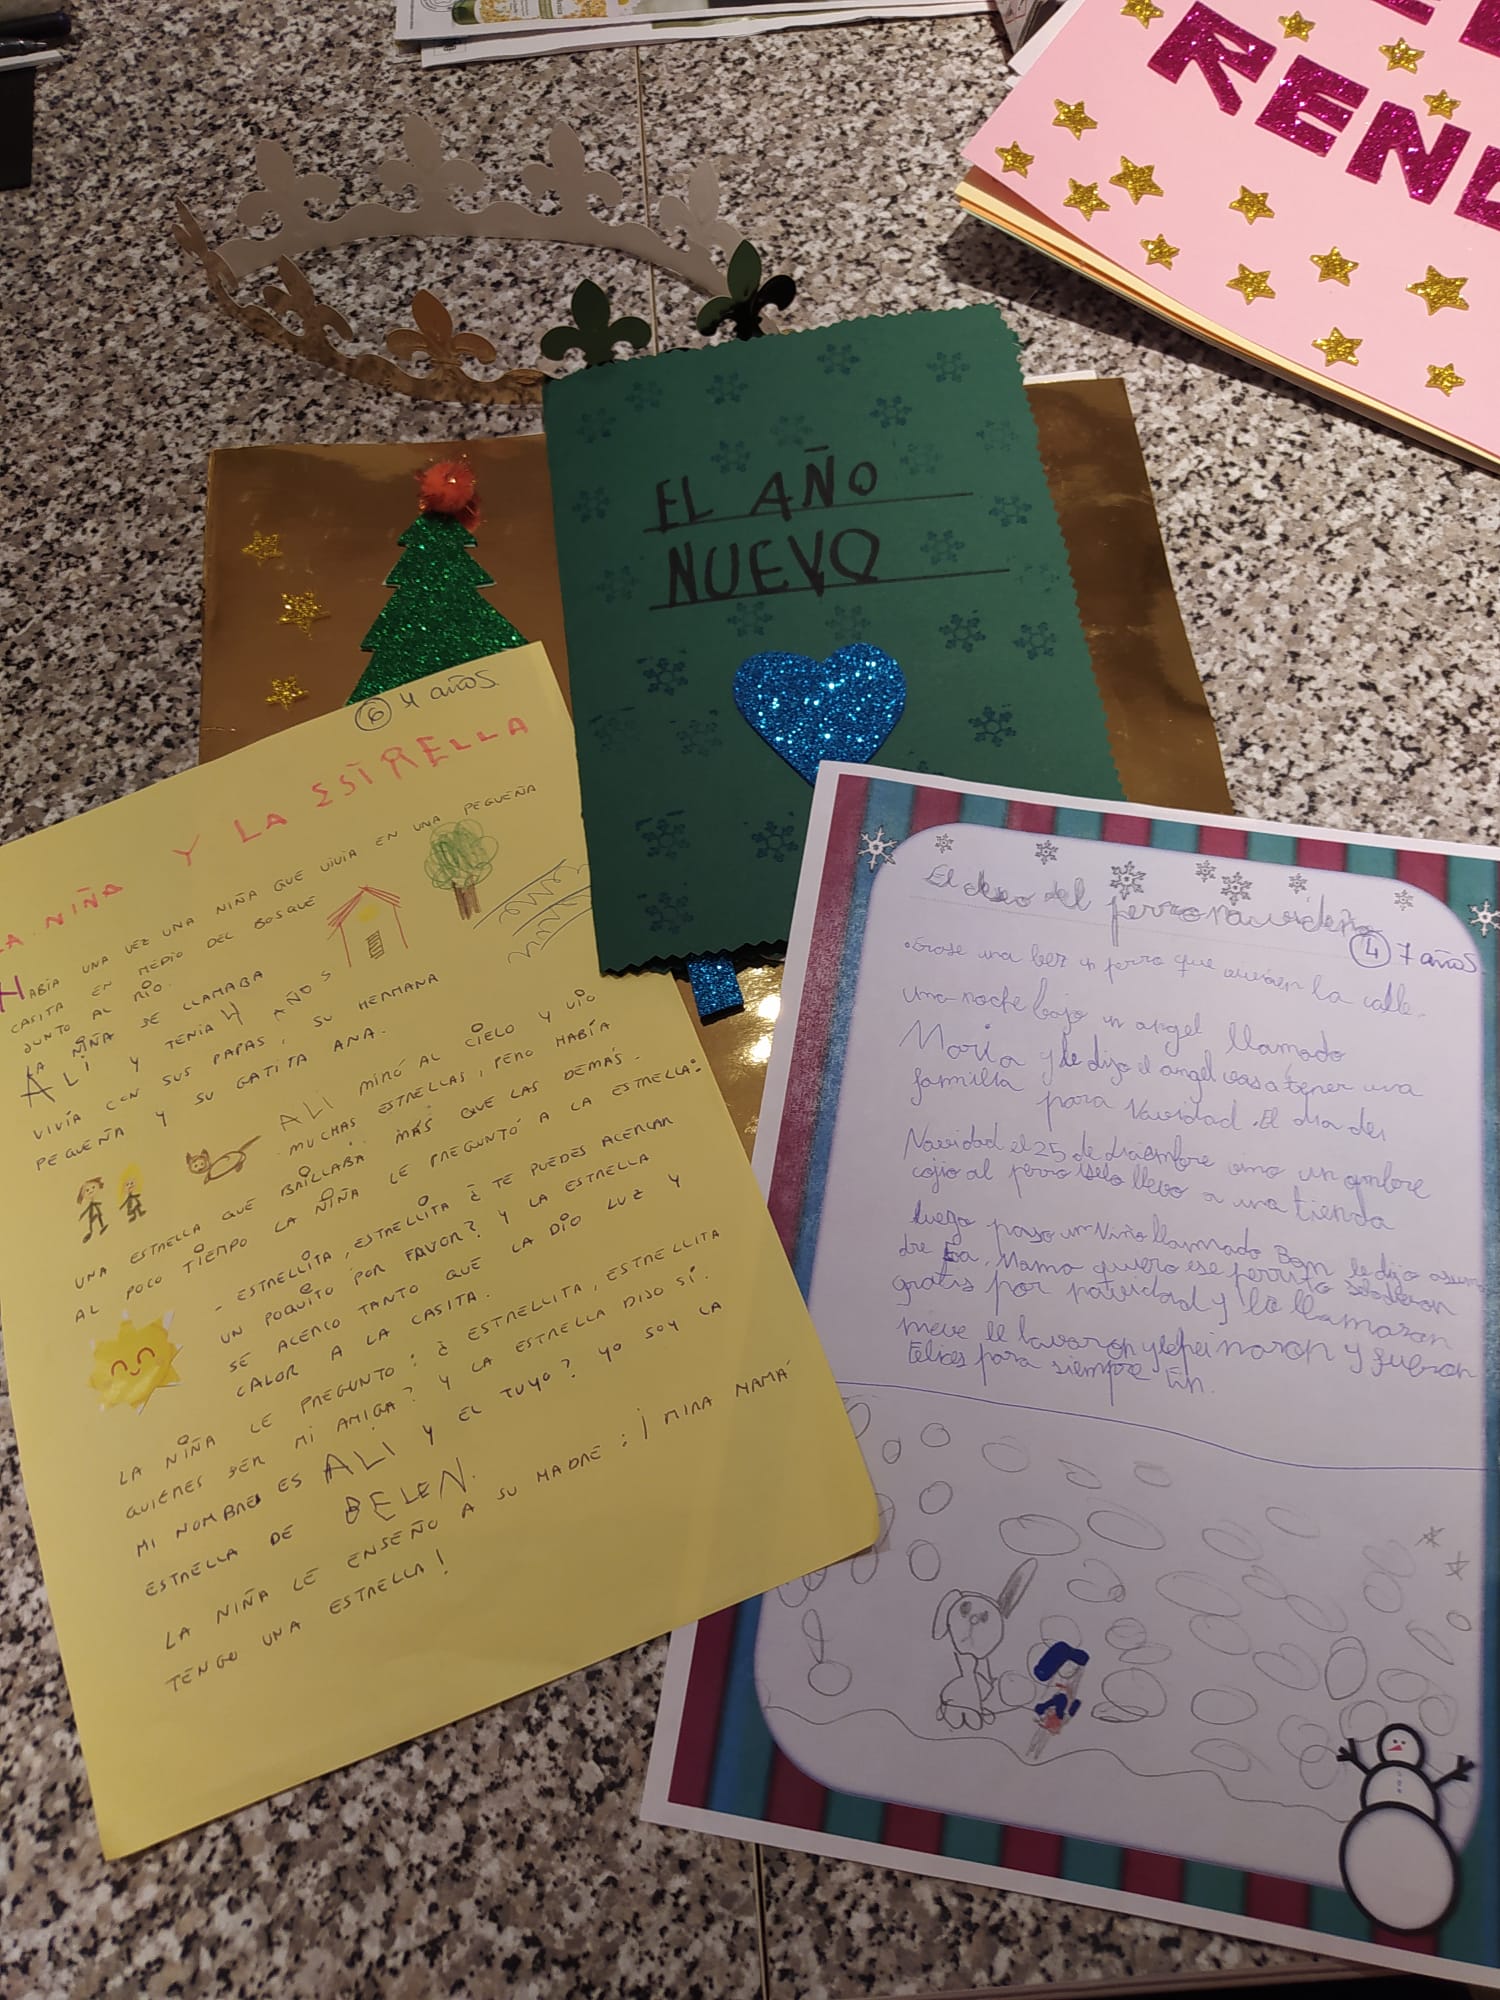 REN
EL AÑO
NUEVO
6 4 años.
LA NIÑA Y LA ESTRELLA
HABÍA UNA VEZ UNA NIÑA QUE VIVÍA EN UNA PEQUEÑA
CASITA EN MEDIO DEL BOSQUE
JUNTO AL RÍO.
LA NIÑA SE LLAMABA
ALI Y TENÍA 4 AÑOS
VIVÍA CON SUS PAPAS, SU HERMANA
PEQUEÑA Y SU GATITA ANA.
ALI MIRÓ AL CIELO Y VIO
MUCHAS ESTRELLAS, PERO HABÍA
UNA ESTRELLA QUE BRILLABA MÁS QUE LAS DEMÁS.
AL POCO TIEMPO LA NIÑA LE PREGUNTÓ A LA ESTRELLA:
- ESTRELLITA, ESTRELLITA ¿ TE PUEDES ACERCAR
UN POQUITO POR FAVOR? Y LA ESTRELLA
SE ACERCO TANTO QUE LA DIO LUZ Y
CALOR A LA CASITA.
LA NIÑA LE PREGUNTO: ¿ ESTRELLITA, ESTRELLITA
QUIERES SER MI AMIGA? Y LA ESTRELLA DIJO SÍ.
MI NOMBRE ES ALI Y EL TUYO? YO SOY LA
ESTRELLA DE BELEN.
LA NIÑA LE ENSEÑO A SU MADRE: ¡ MIRA MAMÁ
TENGO UNA ESTRELLA!
El deseo del perro navideño
4 7 años.
Erase una bez un perro que en la calle.
una noche bajo un angel llamado
Maria y le dijo el angel vas a tener una
familia para Navidad. El dia de
Navidad el 25 de diciembre vino un ombre
cojio al perro se lo llevo a una tienda
luego paso un Niño llamado y le dijo a su ma
dre Mama quiero ese perrito se lo dieron
gratis por navidad y lo llamaran
nieve le lavaron y le peinaron y fueron
felices para siempre Fin.